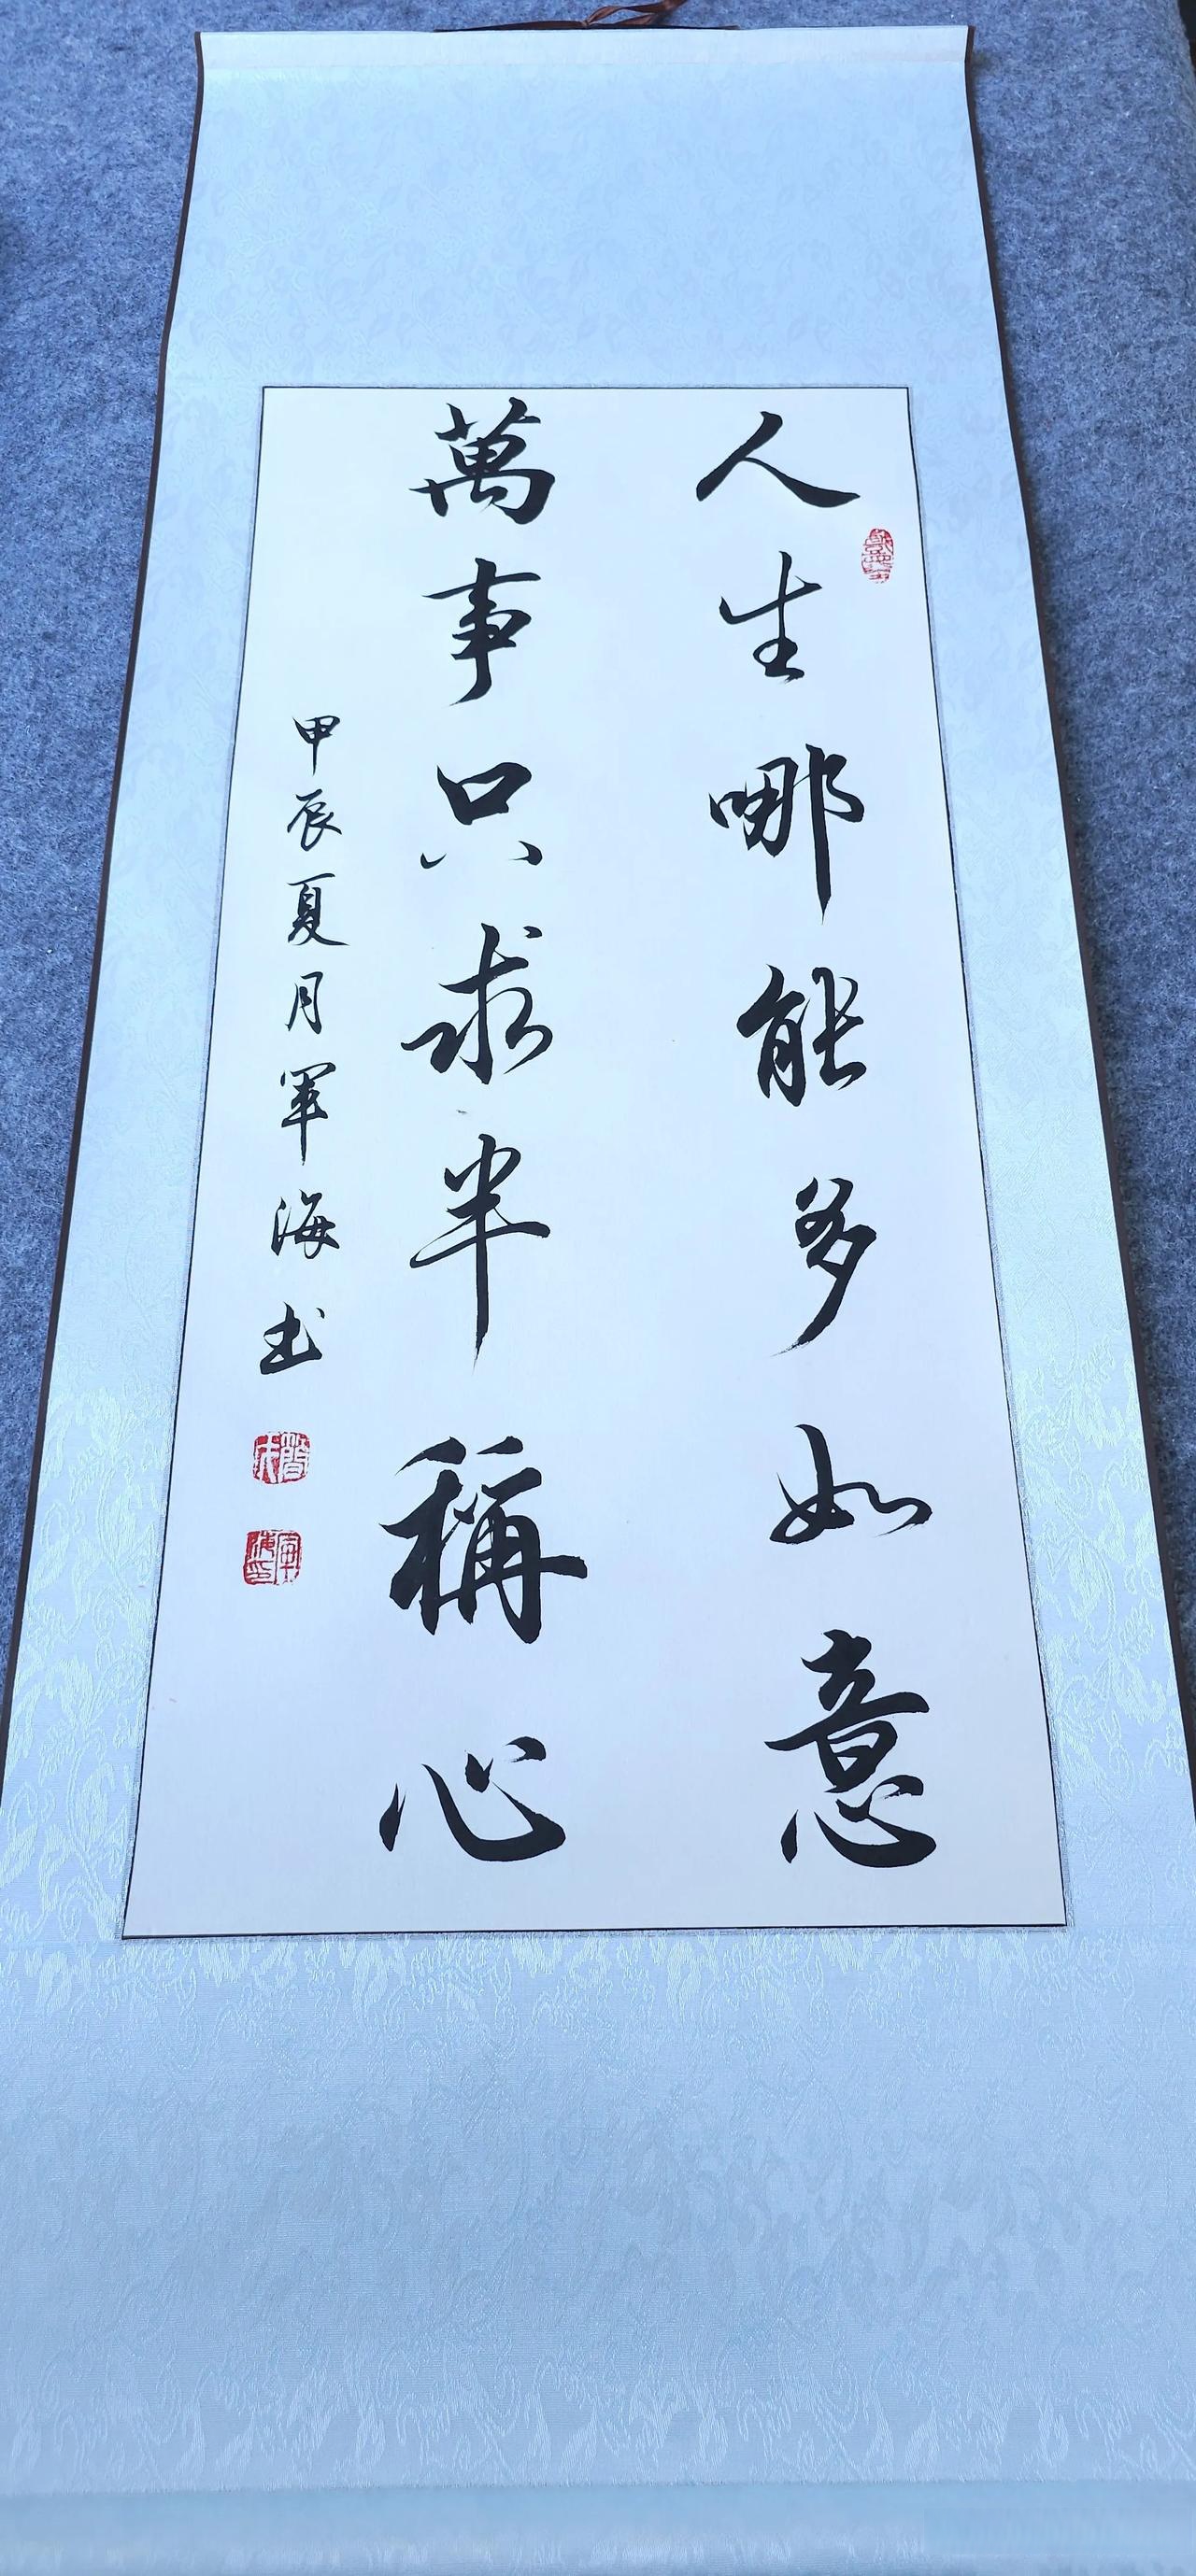 人生哪能多如意
萬事只求半稱心
甲辰夏月軍海书